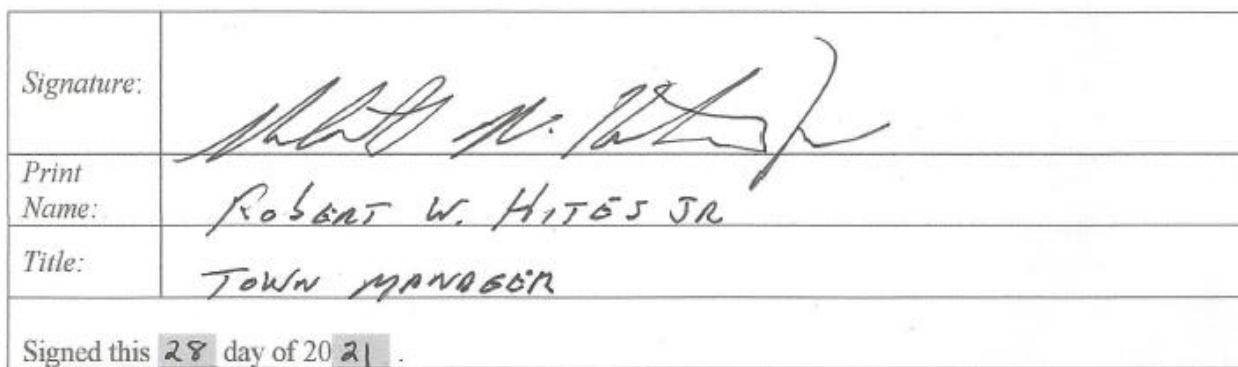 Signature:
Print
Name:
ROBERT W. HITES JR
Title:
TOWN MANAGER
Signed this 28 day of 20 21 .